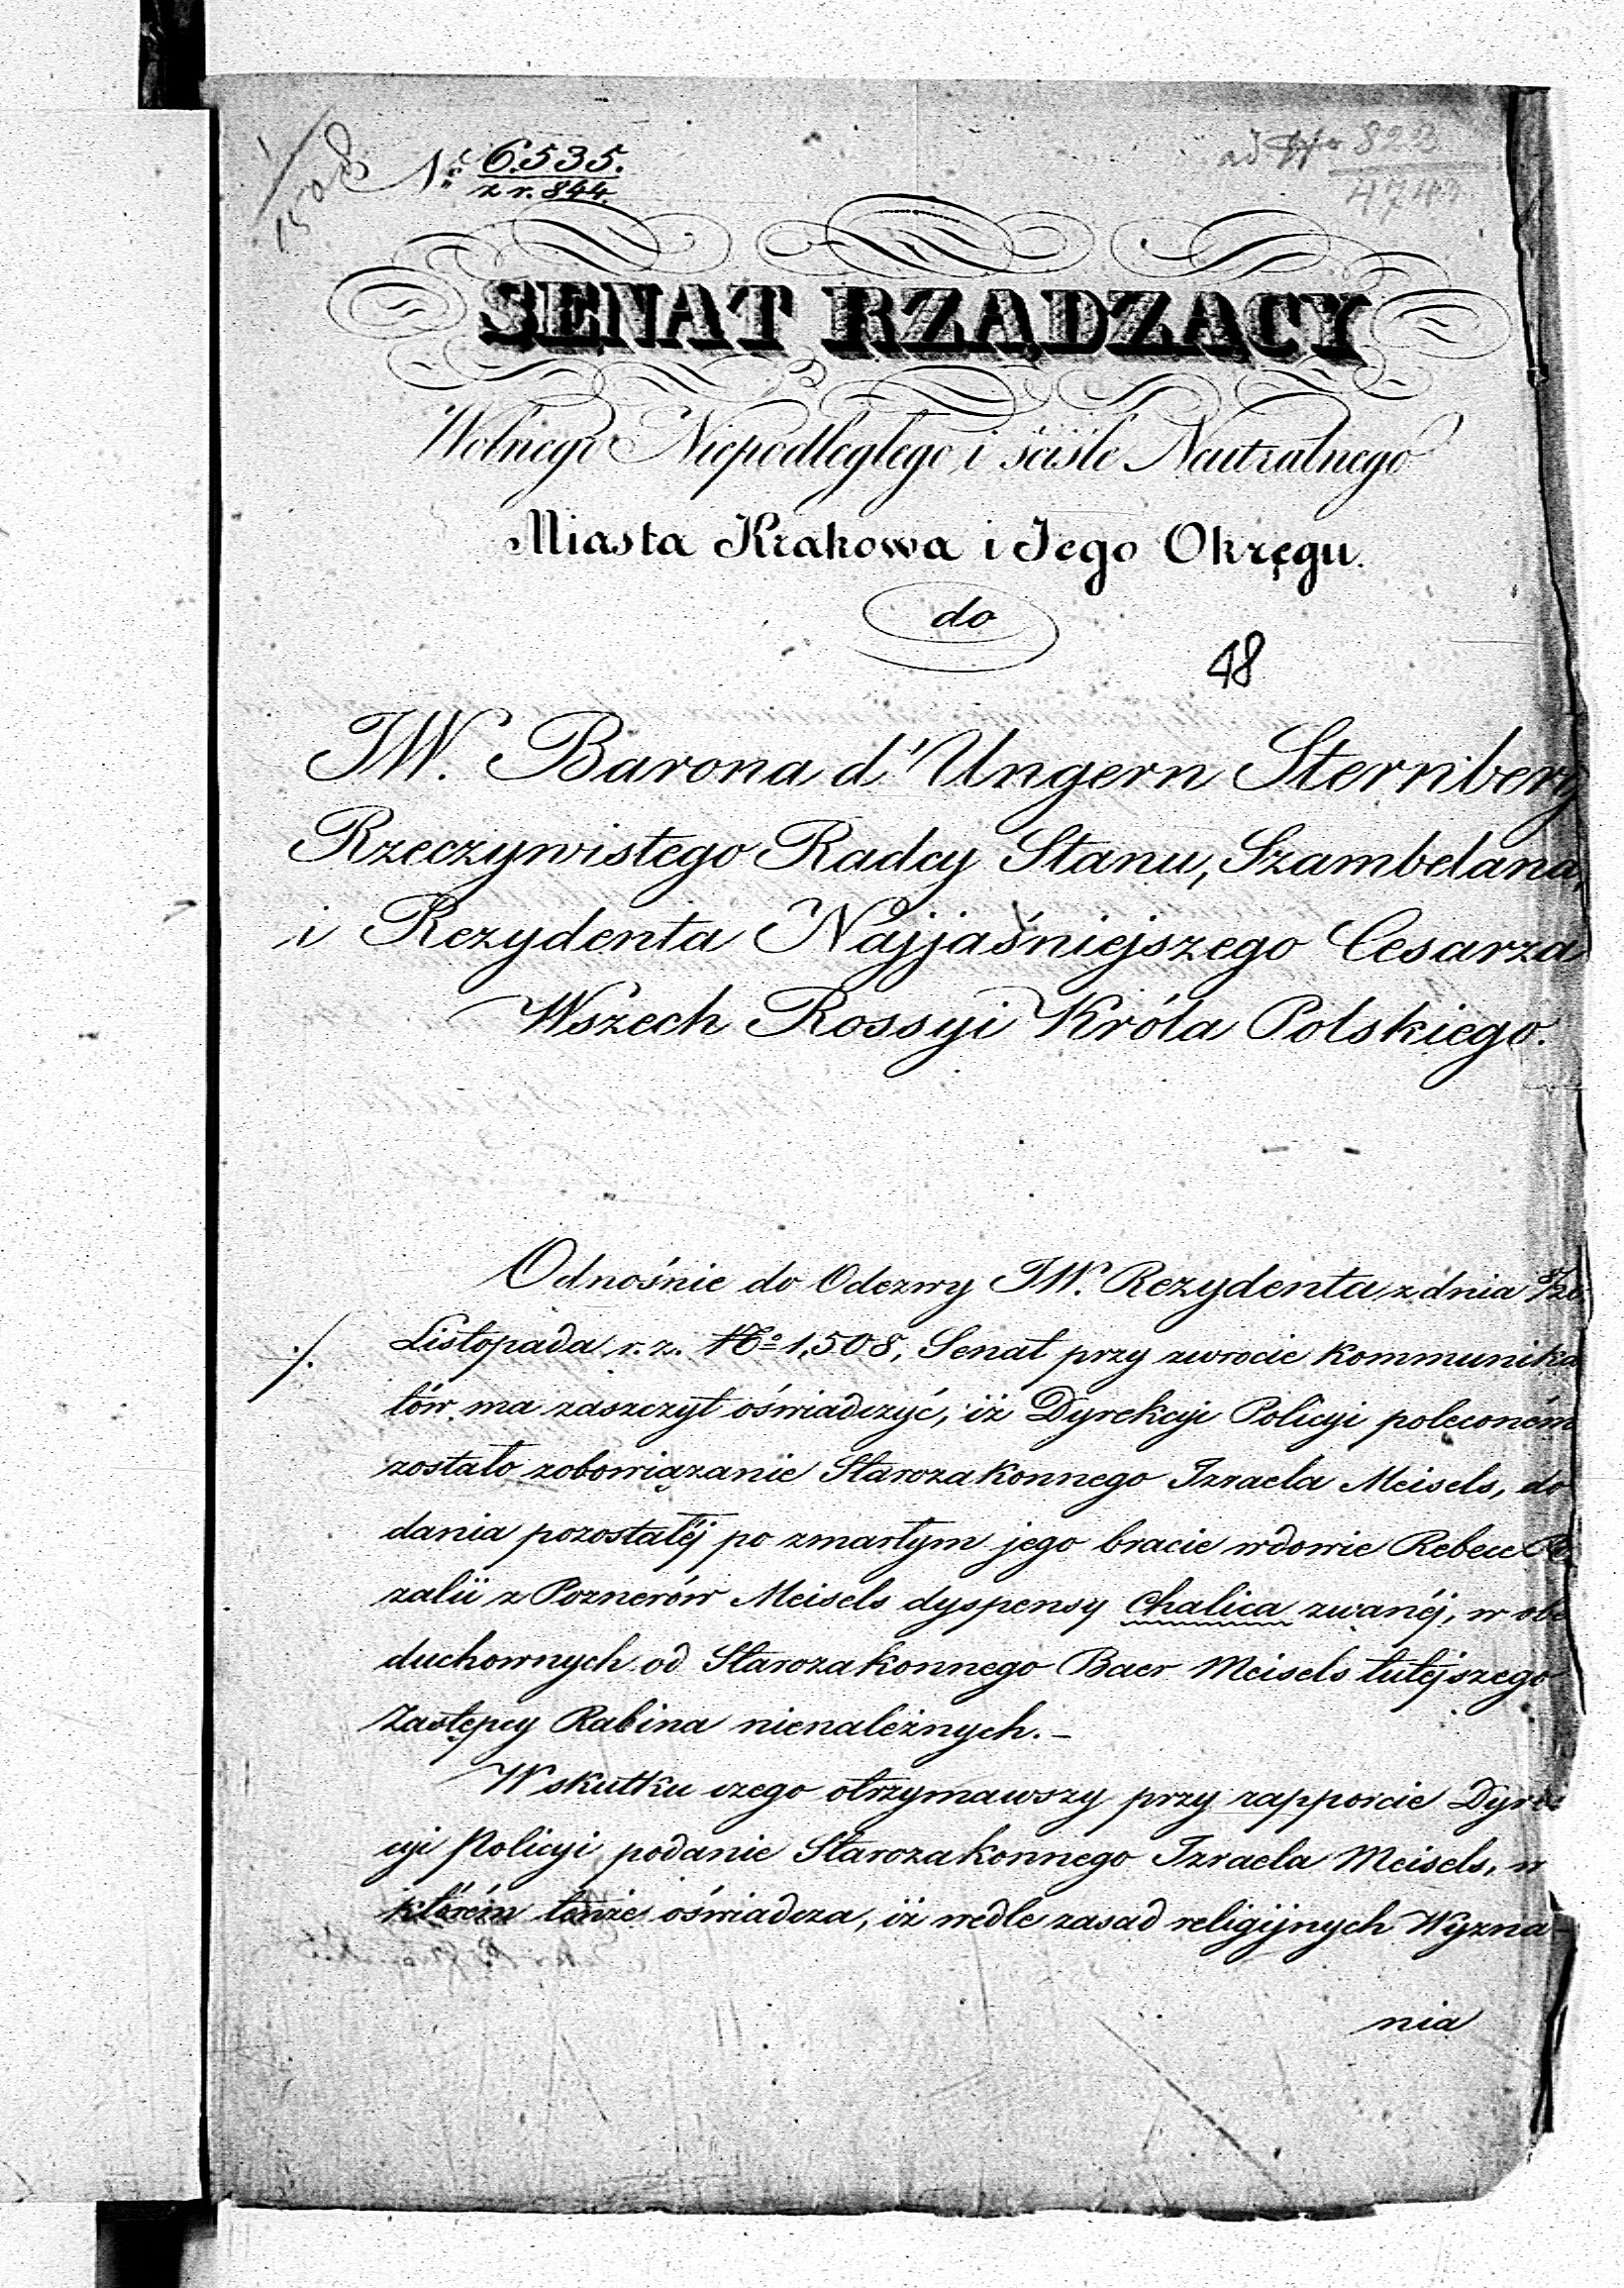 1508
Nr 6535.
z r. 844.
ad Nr 822
SENAT RZĄDZĄCY
Wolnego Niepodległego i ściśle Neutralnego
Miasta Krakowa i Jego Okręgu.
do
48
JW. Barona d'Ungern Sternberg
Rzeczywistego Radcy Stanu, Szambelana,
i Rezydenta Najjaśniejszego Cesarza
Wszech Rossyi Króla Polskiego.
Odnośnie do Odezwy JW. Rezydenta z dnia 8/20
./.
Listopada r. z. No 1,508, Senat przy zwrocie kommunika
tów ma zaszczyt oświadczyć, iż Dyrekcyi Policyi poleconém
zostało zobowiązanie Starozakonnego Izraela Meisels, do
dania pozostałéj po zmarłym jego bracie wdowie Rebece Ro
zalii z Poznerów Meisels dyspensy Chalica zwanéj, w obec
duchownych od Starozakonnego Baer Meisels tutéjszego
Zastępcy Rabina nienależnych. –
W skutku czego otrzymawszy przy rapporcie Dyrek
cyi Policyi podanie Starozakonnego Izraela Meisels, w
którém tenże oświadcza, iż wedle zasad religijnych Wyzna-
nia